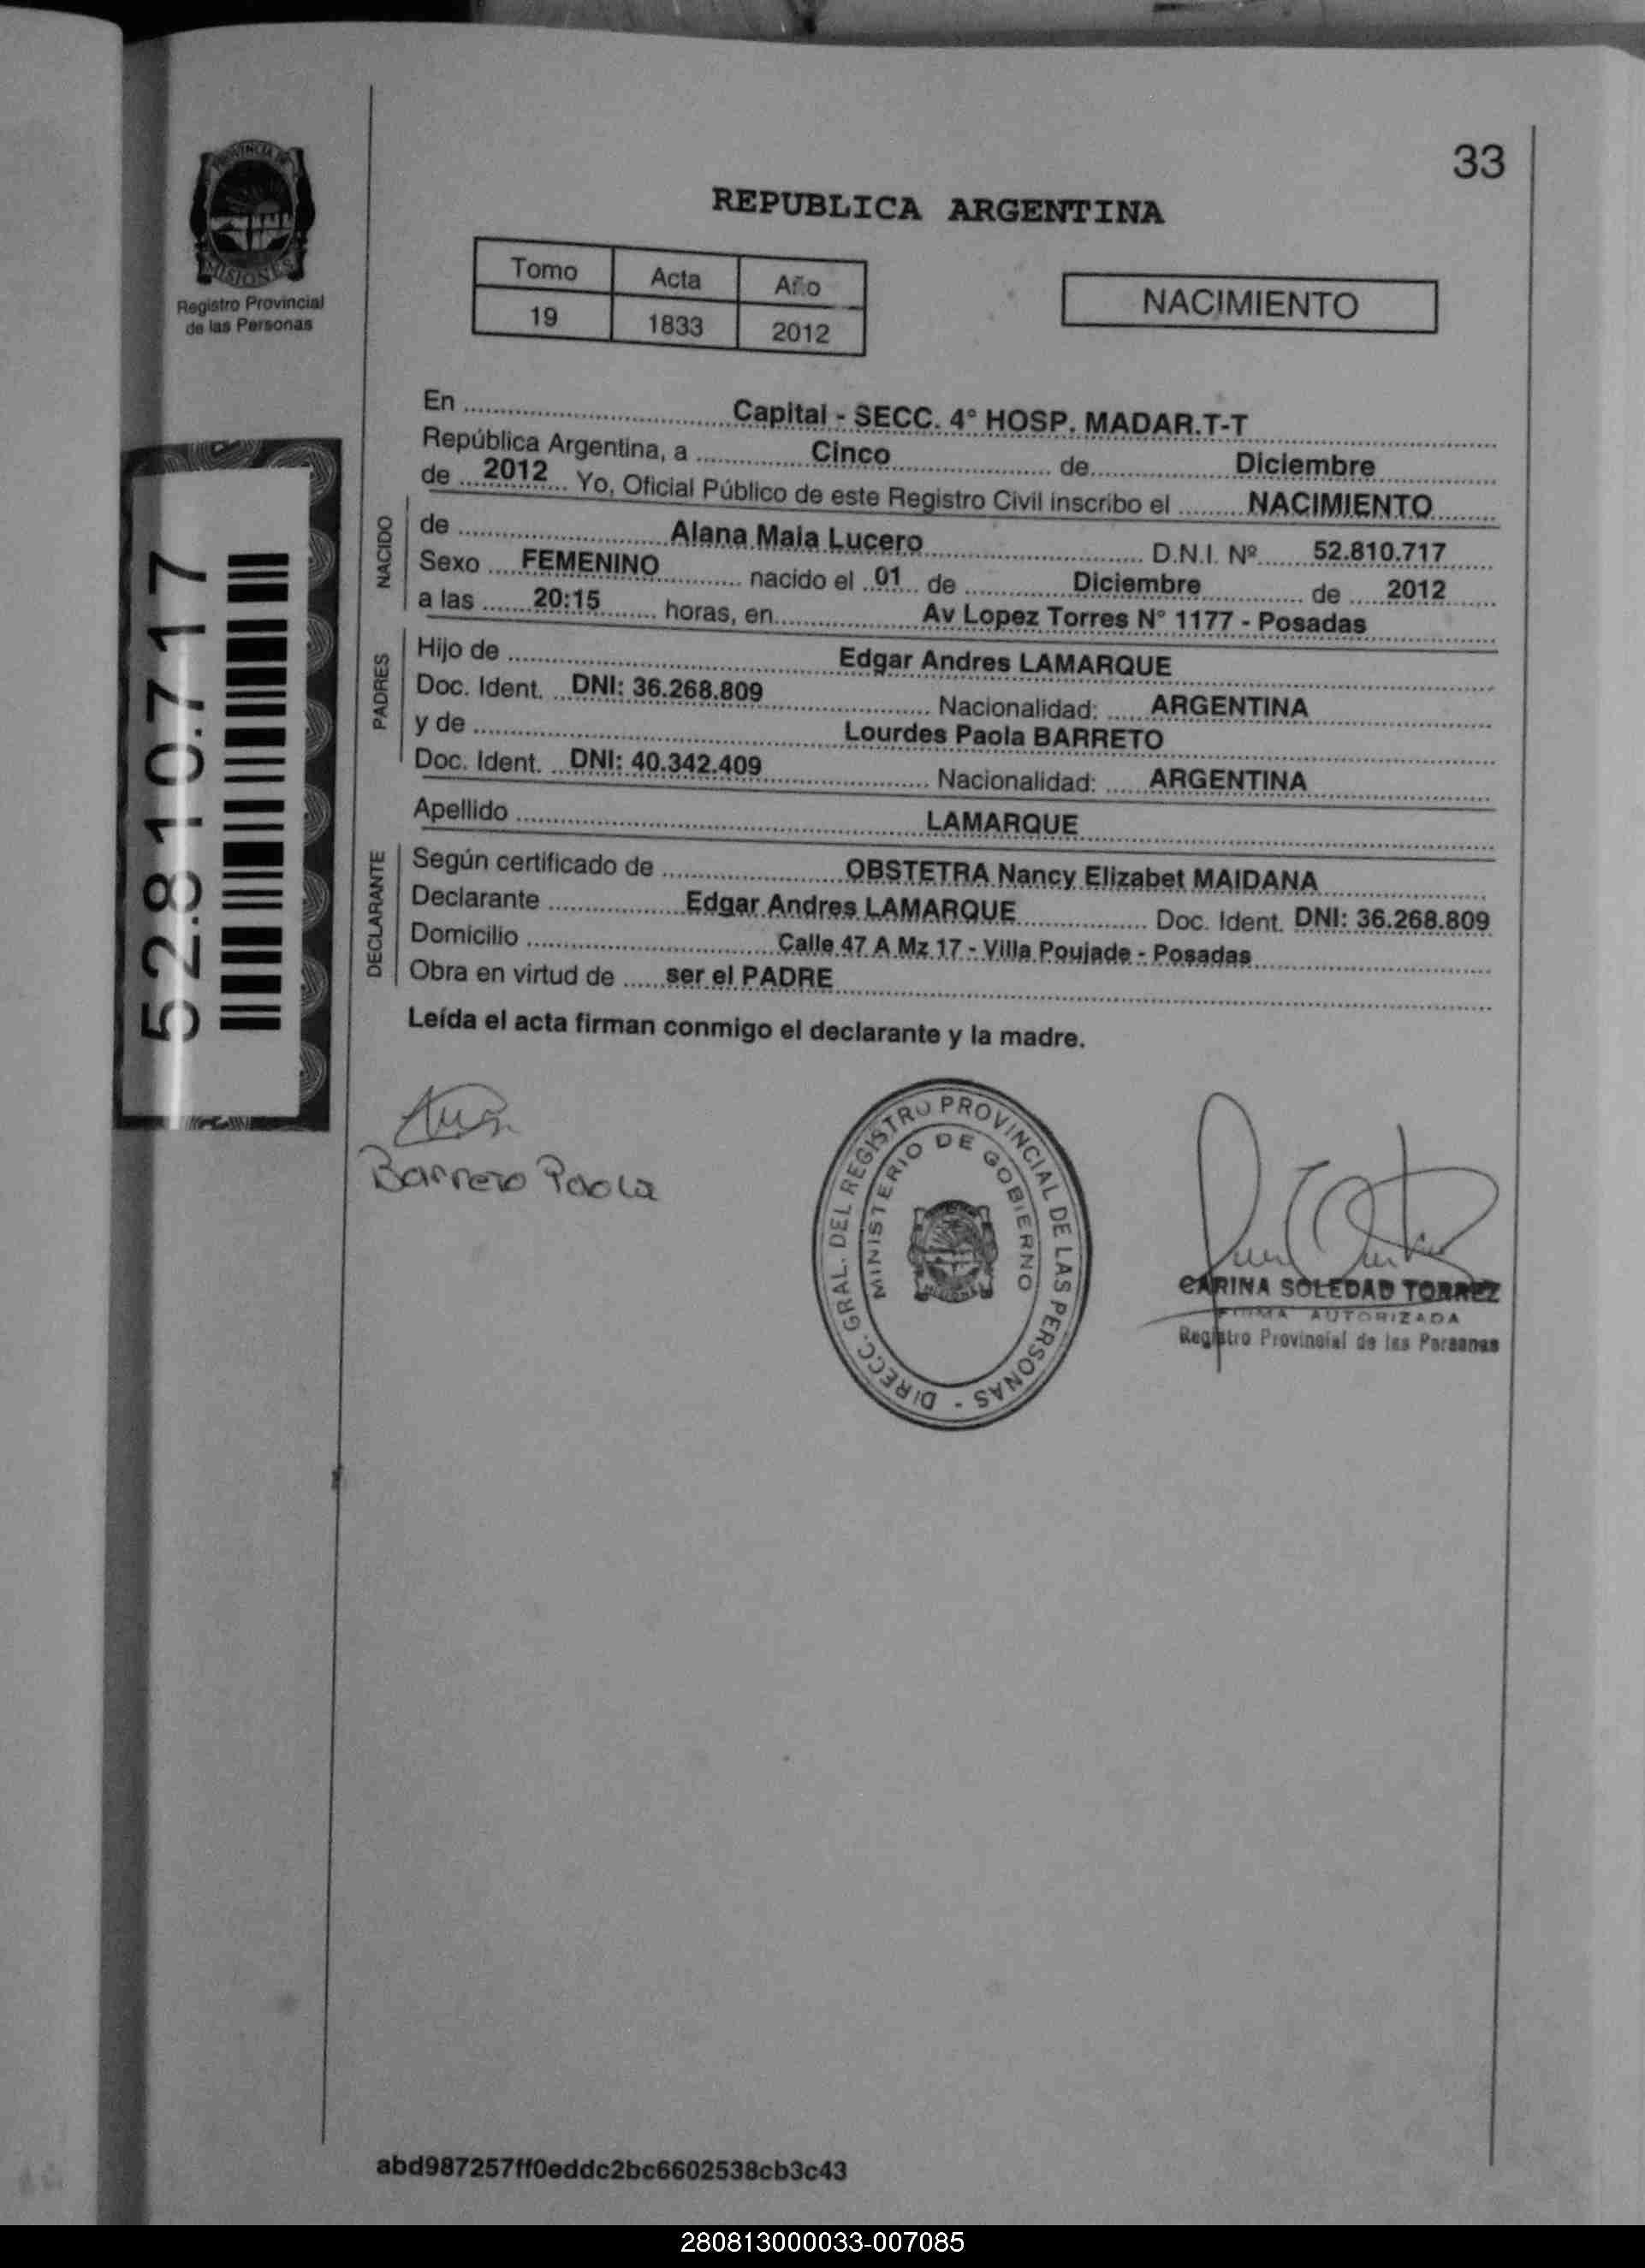 33
PROVINCIA DE
MISIONES
Registro Provincial
de las Personas
REPUBLICA ARGENTINA
Tomo Acta Año
19 1833 2012
NACIMIENTO
En Capital - SECC. 4° HOSP. MADAR.T-T
República Argentina, a Cinco de Diciembre
de 2012 Yo, Oficial Público de este Registro Civil inscribo el NACIMIENTO
NACIDO
de Alana Maia Lucero D.N.I. Nº 52.810.717
Sexo FEMENINO nacido el 01 de Diciembre de 2012
a las 20:15 horas, en Av Lopez Torres N° 1177 - Posadas
PADRES
Hijo de Edgar Andres LAMARQUE
Doc. Ident. DNI: 36.268.809 Nacionalidad: ARGENTINA
y de Lourdes Paola BARRETO
Doc. Ident. DNI: 40.342.409 Nacionalidad: ARGENTINA
Apellido LAMARQUE
DECLARANTE
Según certificado de OBSTETRA Nancy Elizabet MAIDANA
Declarante Edgar Andres LAMARQUE Doc. Ident. DNI: 36.268.809
Domicilio Calle 47 A Mz 17 - Villa Poujade - Posadas
Obra en virtud de ser el PADRE
Leída el acta firman conmigo el declarante y la madre.
52.810.717
Barreto Paola
DIRECC. GRAL. DEL REGISTRO PROVINCIAL DE LAS PERSONAS -
MINISTERIO DE GOBIERNO
CARINA SOLEDAD TORREZ
FIRMA AUTORIZADA
Registro Provincial de las Personas
abd987257ff0eddc2bc6602538cb3c43
280813000033-007085